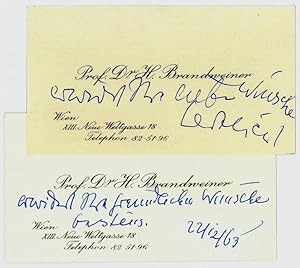 Prof. Dr. H. Brandweiner
erwidert Ihre lieben Wünsche
herzlichst
Wien
XIII. Neue Weltgasse 18
Telephon 82-51-96
Prof. Dr. H. Brandweiner
erwidert Ihre freundlichen Wünsche
bestens.
Wien
XIII. Neue Weltgasse 18
Telephon 82-51-96